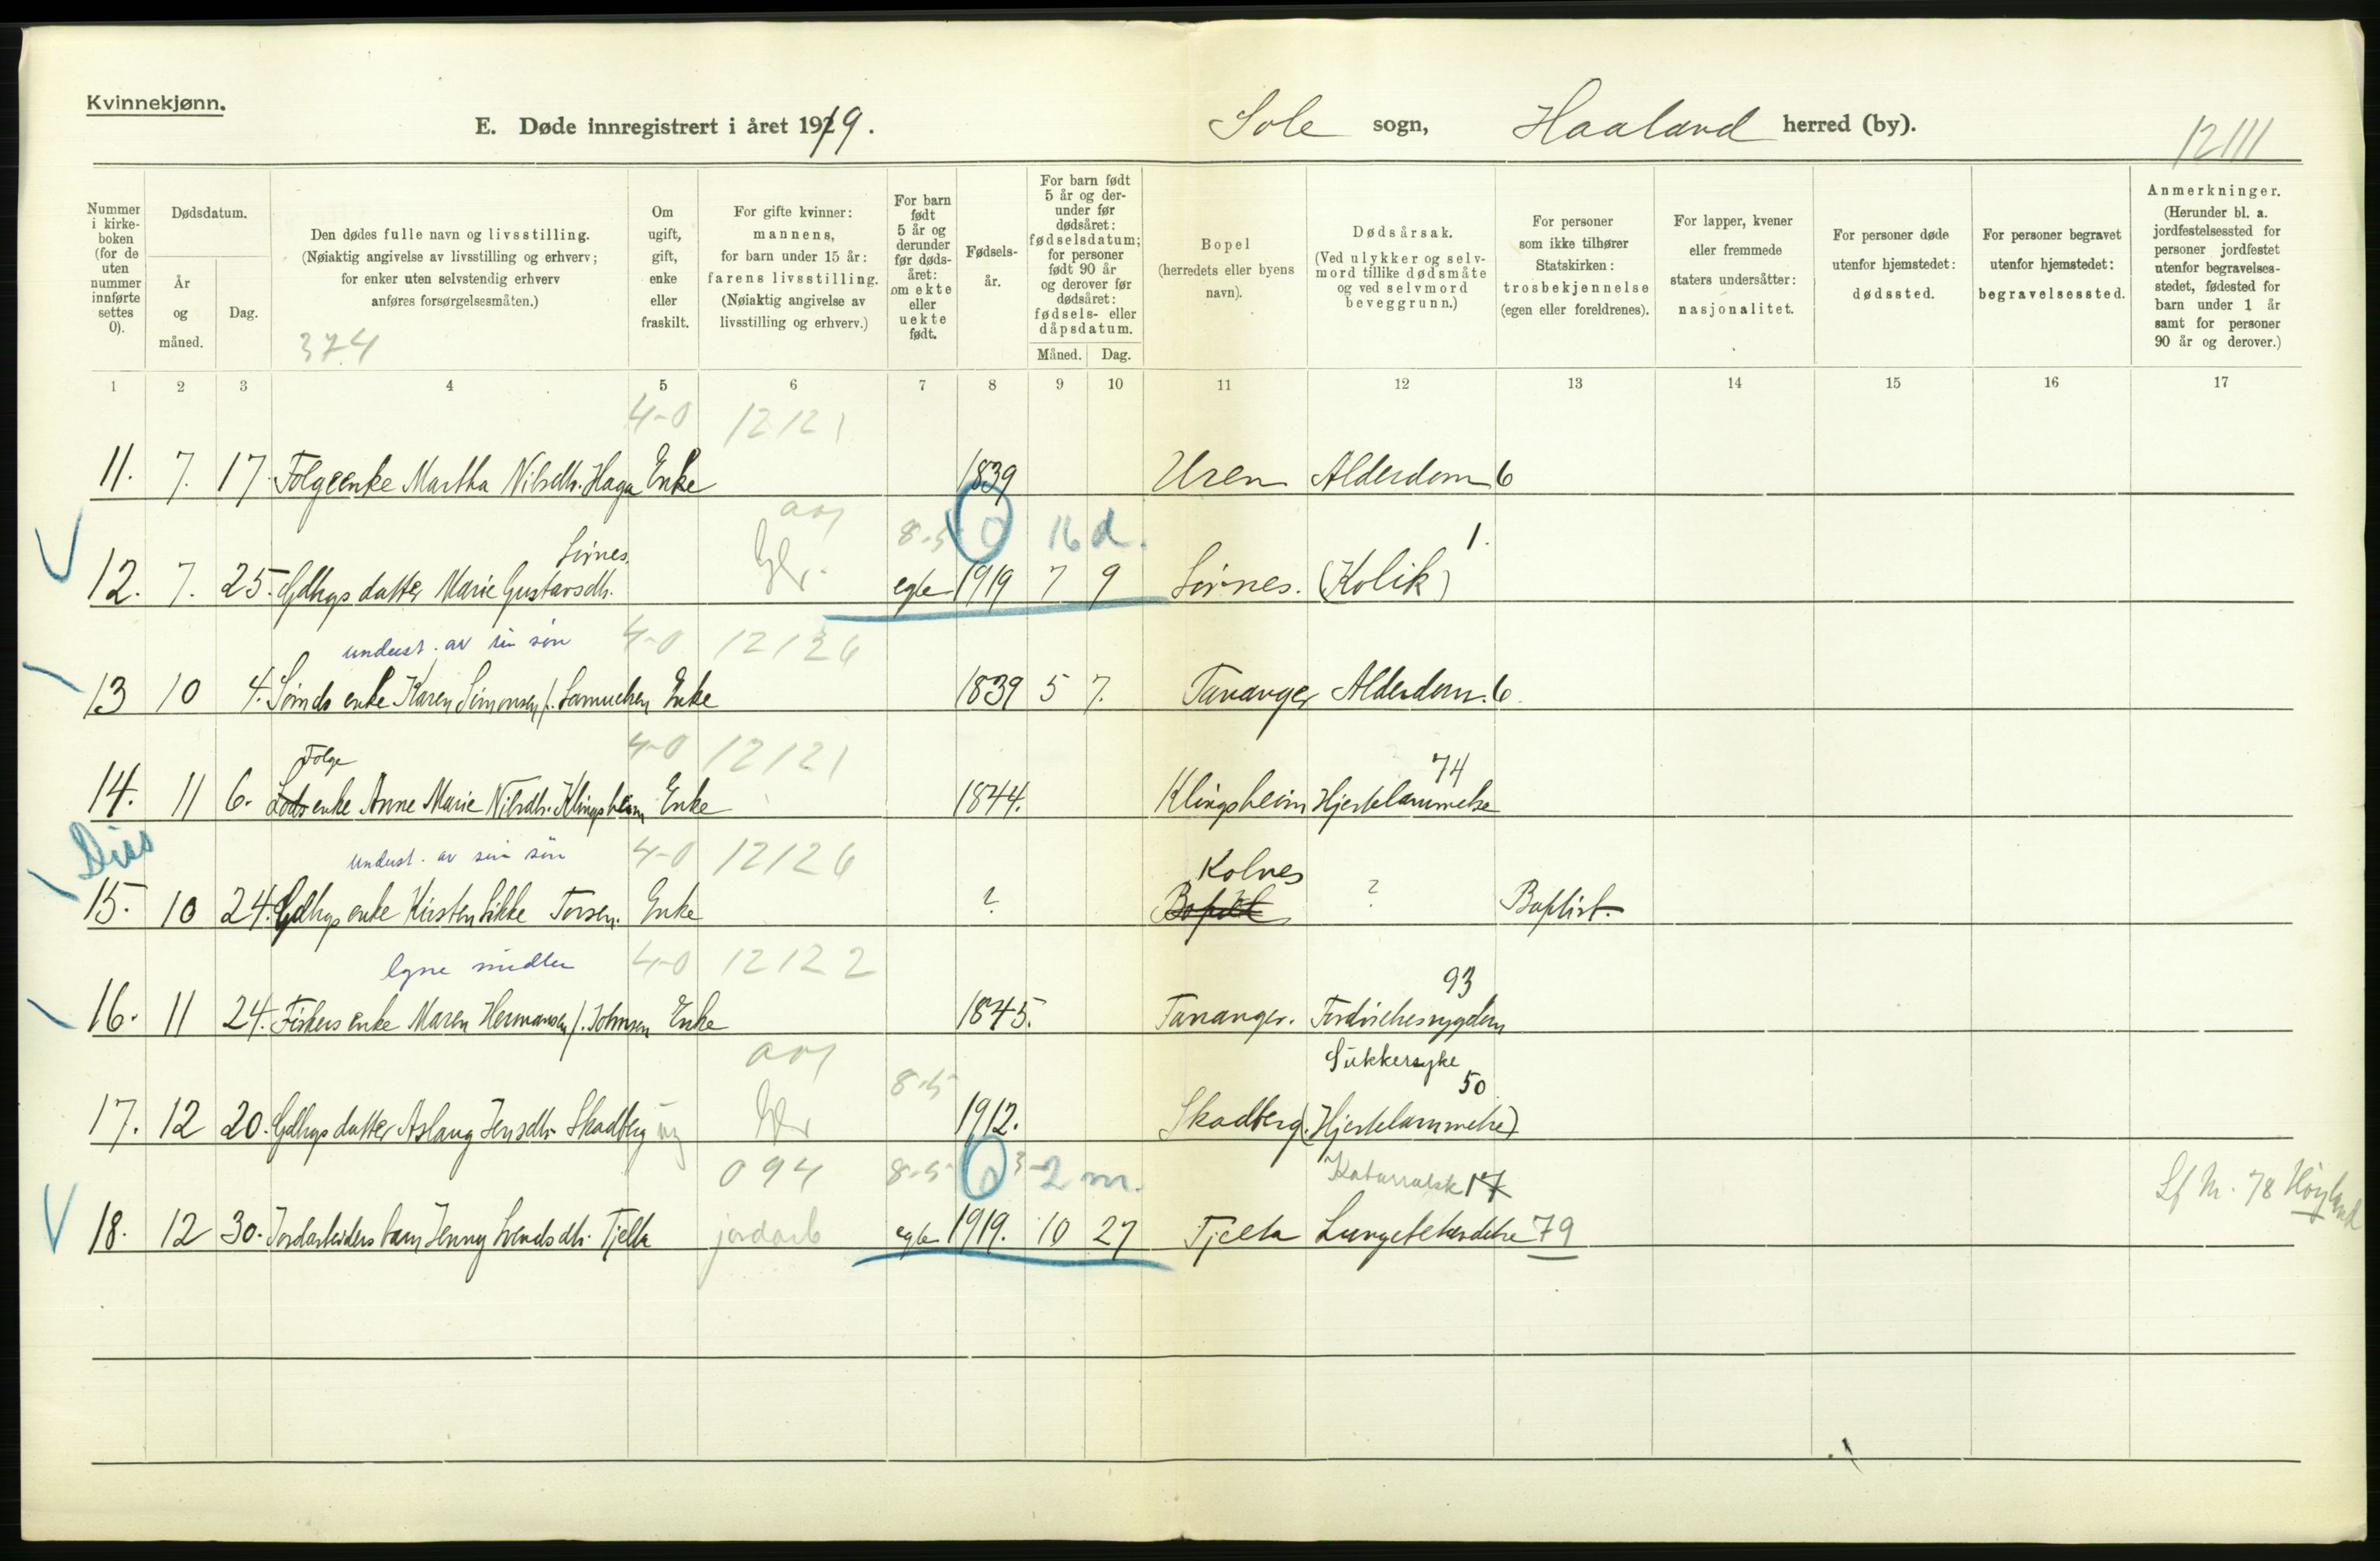 Kvinnekjønn.
E. Døde innregistrert i året 1919. Sole sogn, Haaland herred (by).
12111
Nummer i kirkeboken (for de uten nummer innførte settes 0).
Dødsdatum.
År og måned.
Dag.
Den dødes fulle navn og livsstilling.
(Nøiaktig angivelse av livsstilling og erhverv;
for enker uten selvstendig erhverv
anføres forsørgelsesmåten.)
374
Om ugift, gift, enke eller fraskilt.
For gifte kvinner:
mannens,
for barn under 15 år:
farens livsstilling.
(Nøiaktig angivelse av
livsstilling og erhverv.)
For barn født 5 år og derunder før dødsåret: om ekte eller uekte født.
Fødselsår.
For barn født 5 år og derunder før dødsåret: fødselsdatum; for personer født 90 år og derover før dødsåret: fødsels- eller dåpsdatum.
Måned. Dag.
Bopel
(herredets eller byens
navn).
Dødsårsak.
(Ved ulykker og selvmord tillike dødsmåte og ved selvmord beveggrunn.)
For personer
som ikke tilhører
Statskirken:
trosbekjennelse
(egen eller foreldrenes).
For lapper, kvener
eller fremmede
staters undersåtter:
nasjonalitet.
For personer døde
utenfor hjemstedet:
dødssted.
For personer begravet
utenfor hjemstedet:
begravelsessted.
Anmerkninger.
(Herunder bl. a. jordfestelsessted for personer jordfestet utenfor begravelsesstedet, fødested for barn under 1 år samt for personer 90 år og derover.)
1 2 3 4 5 6 7 8 9 10 11 12 13 14 15 16 17
4-0 12121
11. 7. 17. Følgeenke Martha Nilsdtr. Haga Enke 1839 Uren Alderdom 6
8-5 0 16 d.
Sørnes. 1.
12. 7. 25. Gdbrgs datter Marie Gustavsdtr. egte 1919 7 9 Sørnes. (Kolik)
underst. av sin søn 4-0 12126
13 10 4. enke Karen Simonsen f. Samuelsen Enke 1839 5 7. Tananger Alderdom. 6.
Følge 4-0 12121 74
14. 11 6. Lods enke Anne Marie Nilsdtr. Klingsheim Enke 1844. Klingsheim Hjertelammelse
Diss
underst. av sin søn 4-0 12126 Kolnes
15. 10 24. Gdbrgs enke Kirsten Torsen. Enke ? ? Baptist.
Egne midler 4-0 12122 93
16. 11 24. Fiskers enke Maren Hermansen f. Johnsen Enke 1845. Tananger.
Sukkersyke
8-5 50
17. 12 20. Gdbrgs datter Aslaug Jensdtr. Skadberg ug 1912. Skadberg. (Hjertelammelse)
094 8-5 0 3 2 m. Katarralsk 17
18. 12 30. Jordarbeiders barn Jenny Svendsdtr. Tjelta jordarb egte 1919. 10 27 Tjelta Lungebetændelse 79
Lf Nr. 78 Høyland